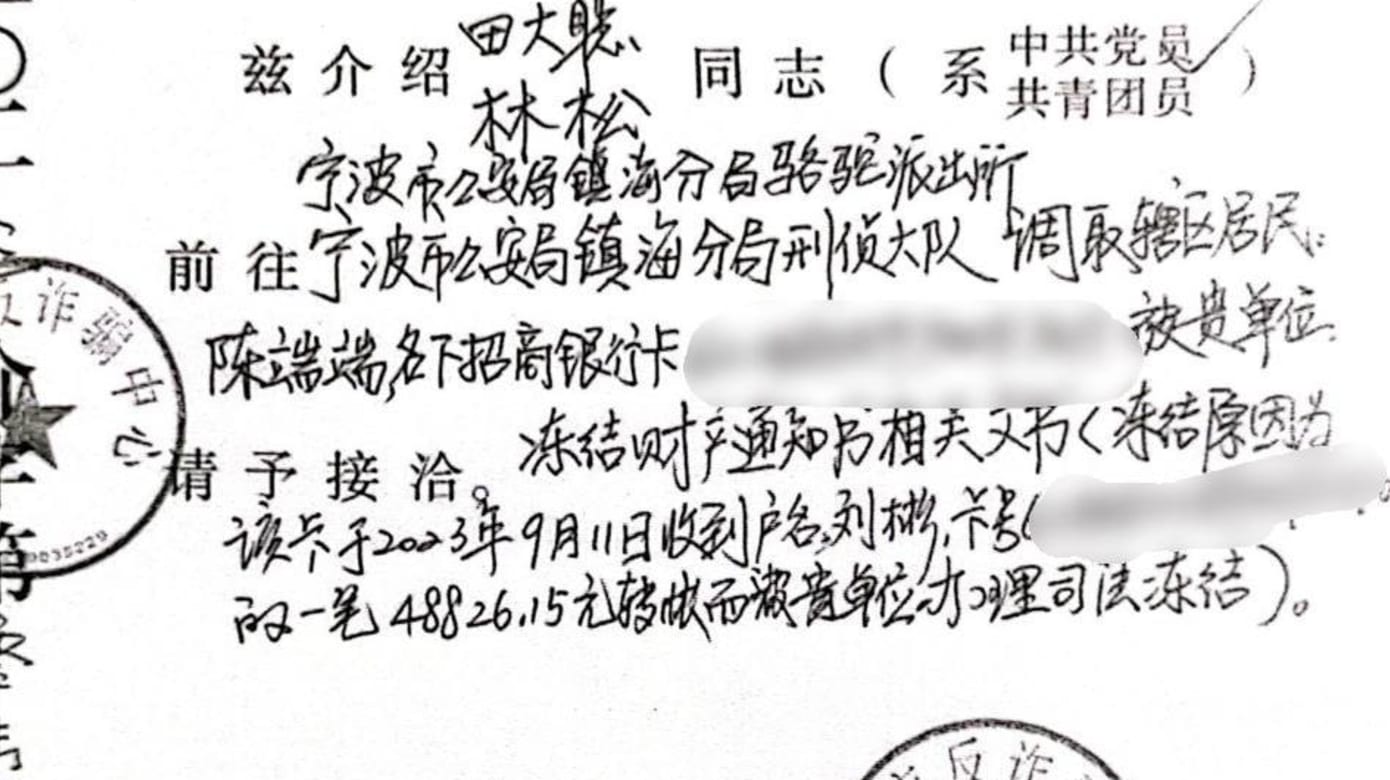 兹介绍 田大聪 林松 同志(系 中共党员✓ 共青团员)
宁波市公安局镇海分局骆驼派出所
前往宁波市公安局镇海分局刑侦大队 调取辖区居民:
陈端端,名下招商银行卡 被贵单位
请予接洽。冻结财产通知书相关文书(冻结原因为
该卡于2023年9月11日收到户名:刘彬,卡号(
的一笔48826.15元转账而被贵单位办理司法冻结)。
反诈骗中心
0035229
反诈